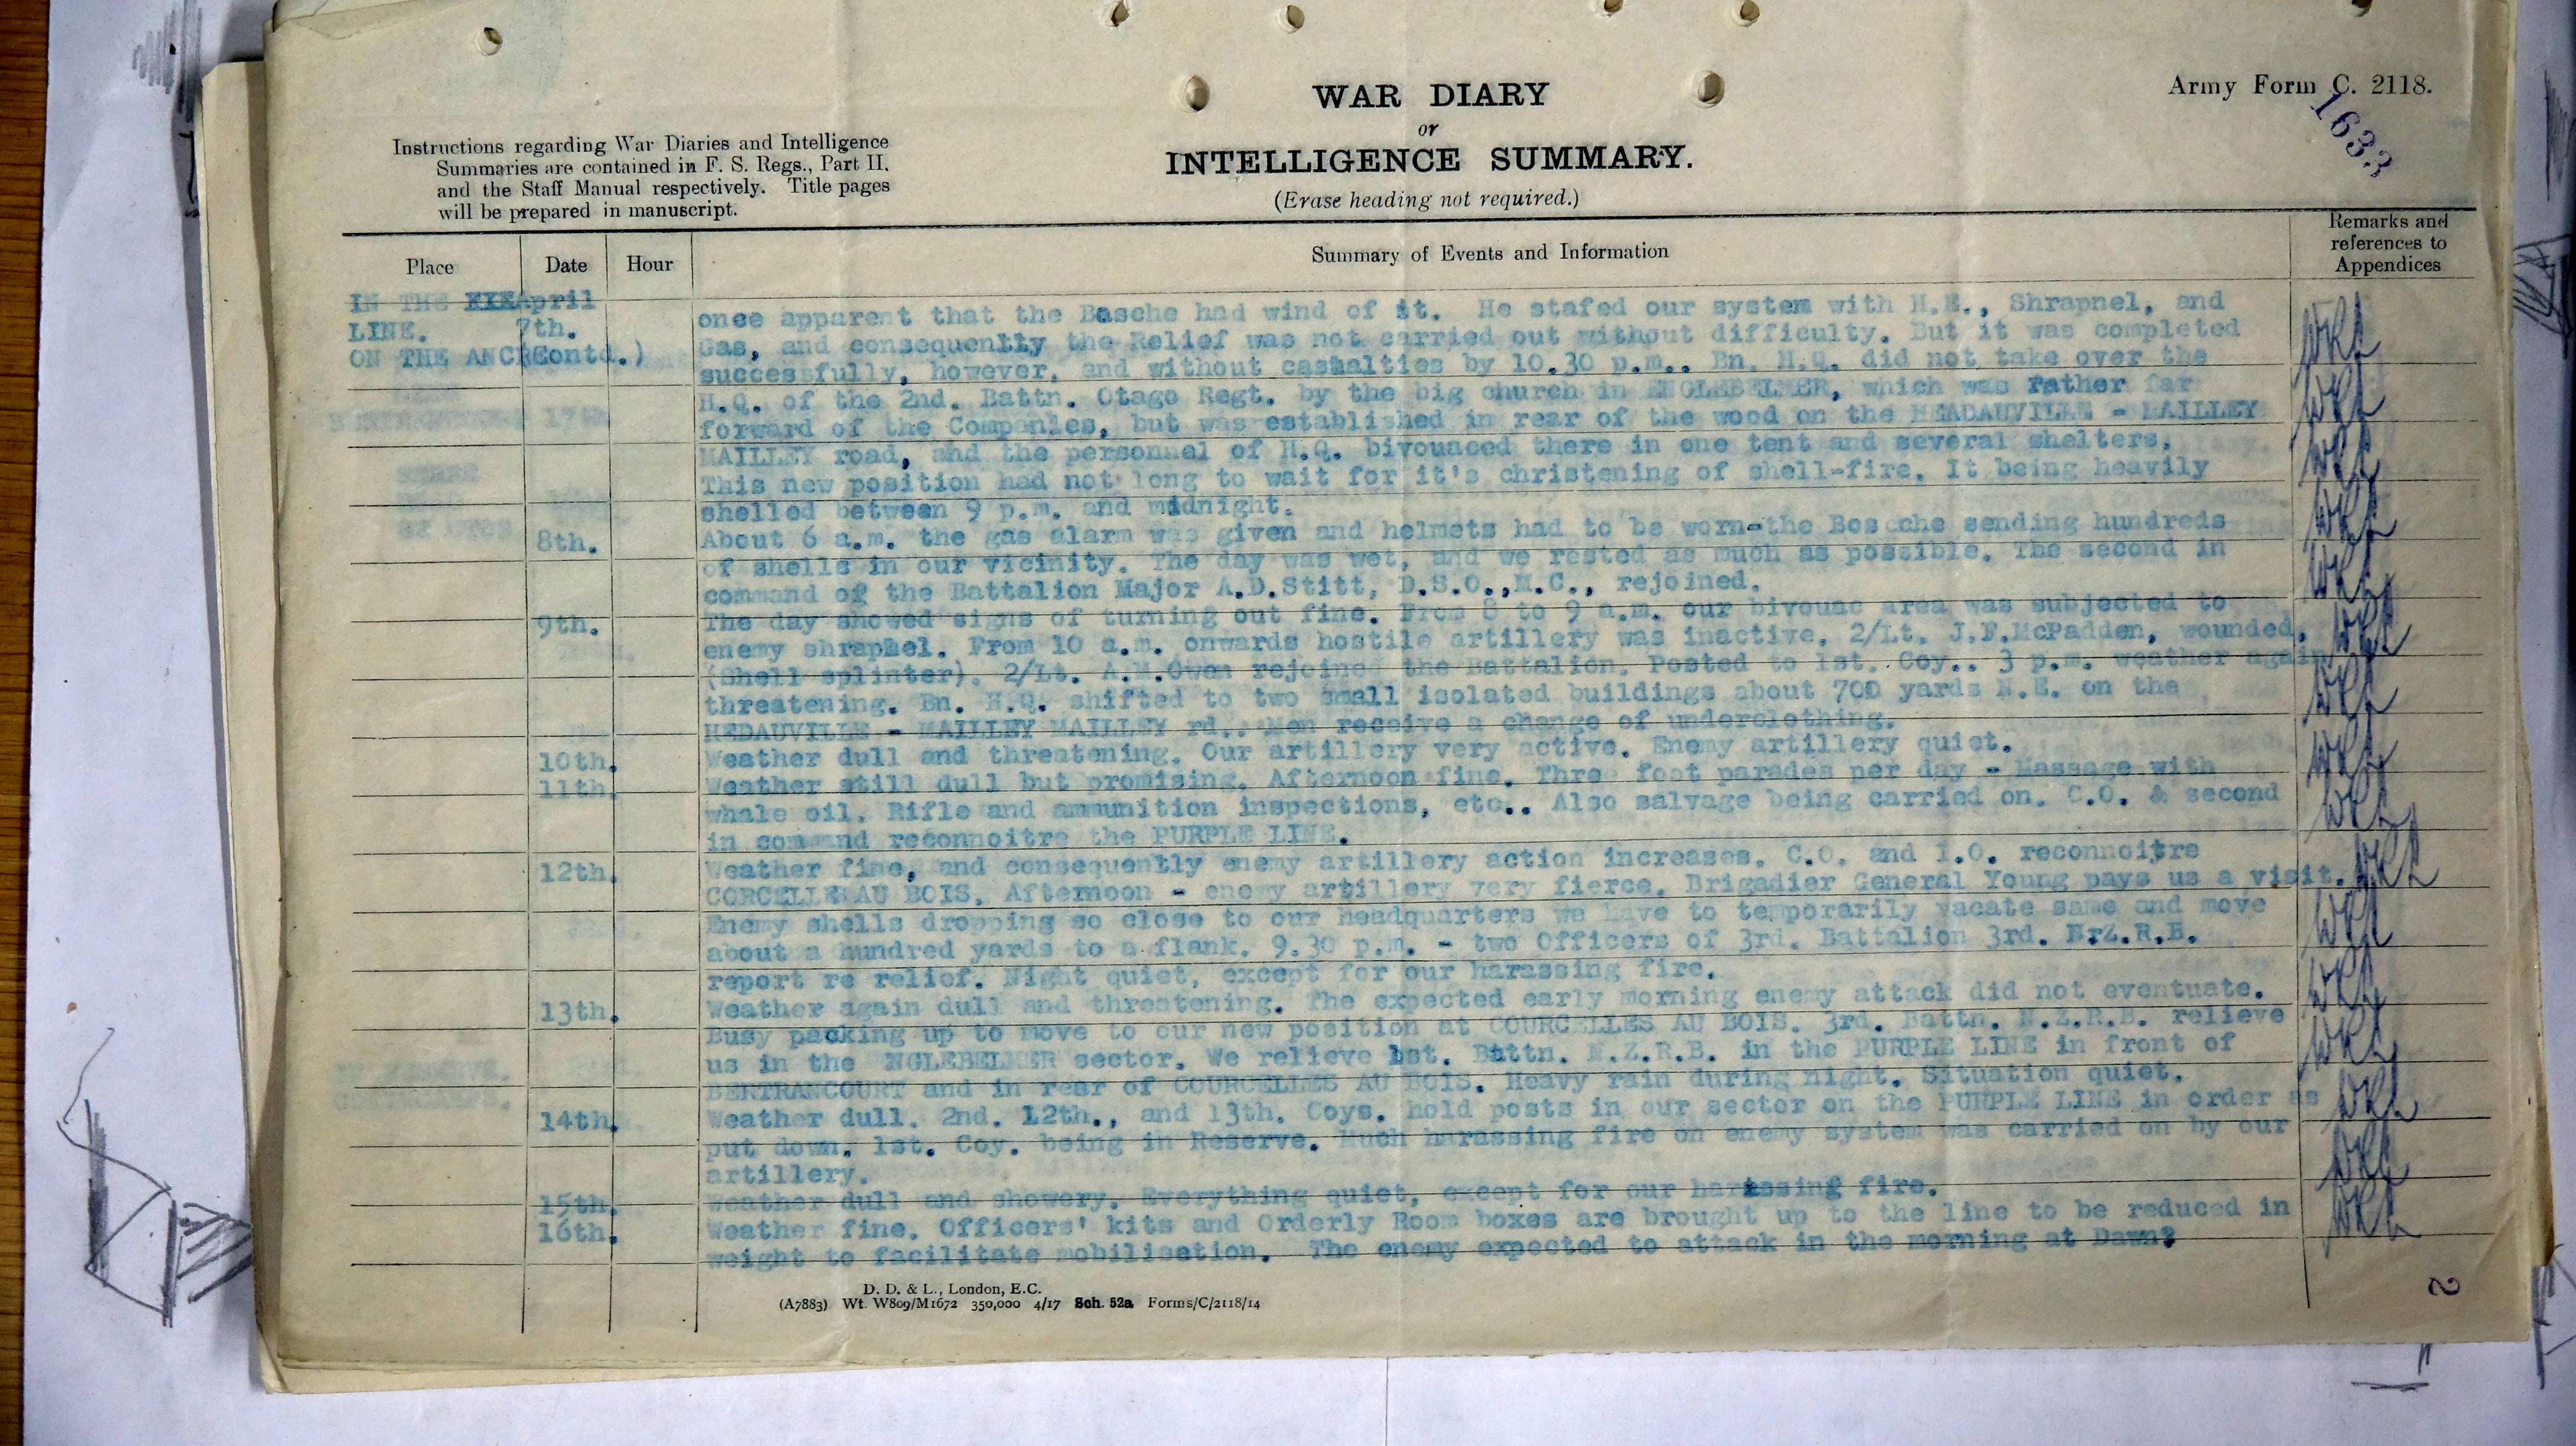 WAR DIARY
or
INTELLIGENCE SUMMARY.
(Erase heading not required.)
Army Form C. 2118.
1633
Instructions regarding War Diaries and Intelligence
Summaries are contained in F. S. Regs., Part II.
and the Staff Manual respectively. Title pages
will be prepared in manuscript.
Place Date Hour Summary of Events and Information Remarks and references to Appendices
IN THE April
LINE. 7th.
ON THE ANCRE (Contd.)
once apparent that the Bosche had wind of it. He stafed our system with H.E., Shrapnel, and
Gas, and consequently the Relief was not carried out without difficulty. But it was completed
successfully, however, and without casualties by 10.30 p.m.. Bn. H.Q. did not take over the
H.Q. of the 2nd. Battn. Otago Regt. by the big church in ENGLEBELMER, which was rather far
forward of the Companies, but was established in rear of the wood on the HEADAUVILLE - MAILLEY
MAILLEY road, and the personnel of H.Q. bivouaced there in one tent and several shelters.
This new position had not long to wait for it's christening of shell-fire. It being heavily
shelled between 9 p.m. and midnight.
8th. About 6 a.m. the gas alarm was given and helmets had to be worn-the Bosche sending hundreds
of shells in our vicinity. The day was wet, and we rested as much as possible. The second in
command of the Battalion Major A.D.Stitt, D.S.O.,M.C., rejoined.
9th. The day showed signs of turning out fine. From 8 to 9 a.m. our bivouac area was subjected to
enemy shrapnel. From 10 a.m. onwards hostile artillery was inactive. 2/Lt. J.F.McPadden, wounded,
(Shell splinter). 2/Lt. A.M.Owen rejoined the Battalion. Posted to 1st. Coy.. 3 p.m. weather again
threatening. Bn. H.Q. shifted to two small isolated buildings about 700 yards N.E. on the
HEDAUVILLE - MAILLEY MAILLEY rd.. Men receive a change of underclothing.
10th. Weather dull and threatening. Our artillery very active. Enemy artillery quiet.
11th. Weather still dull but promising. Afternoon fine. Three foot parades per day - Massage with
whale oil. Rifle and ammunition inspections, etc.. Also salvage being carried on. C.O. & second
in command reconnoitre the PURPLE LINE.
12th. Weather fine, and consequently enemy artillery action increases. C.O. and I.O. reconnoitre
CORCELLES AU BOIS. Afternoon - enemy artillery very fierce. Brigadier General Young pays us a visit.
Enemy shells dropping so close to our headquarters we have to temporarily vacate same and move
about a hundred yards to a flank. 9.30 p.m. - two Officers of 3rd. Battalion 3rd. N.Z.R.B.
report re relief. Night quiet, except for our harassing fire.
13th. Weather again dull and threatening. The expected early morning enemy attack did not eventuate.
Busy packing up to move to our new position at COURCELLES AU BOIS. 3rd. Battn. N.Z.R.B. relieve
us in the NGLEBELMER sector. We relieve 1st. Battn. N.Z.R.B. in the PURPLE LINE in front of
BERTRANCOURT and in rear of COURCELLES AU BOIS. Heavy rain during night. Situation quiet.
14th. Weather dull. 2nd. 12th., and 13th. Coys. hold posts in our sector on the PURPLE LINE in order as
put down. 1st. Coy. being in Reserve. Much harassing fire on enemy system was carried on by our
artillery.
15th. Weather dull and showery. Everything quiet, except for our harassing fire.
16th. Weather fine. Officers' kits and Orderly Room boxes are brought up to the line to be reduced in
weight to facilitate mobilisation. The enemy expected to attack in the morning at Dawn?
D. D. & L., London, E.C.
(A7883) Wt. W809/M1672 350,000 4/17 Sch. 52a Forms/C/2118/14
2